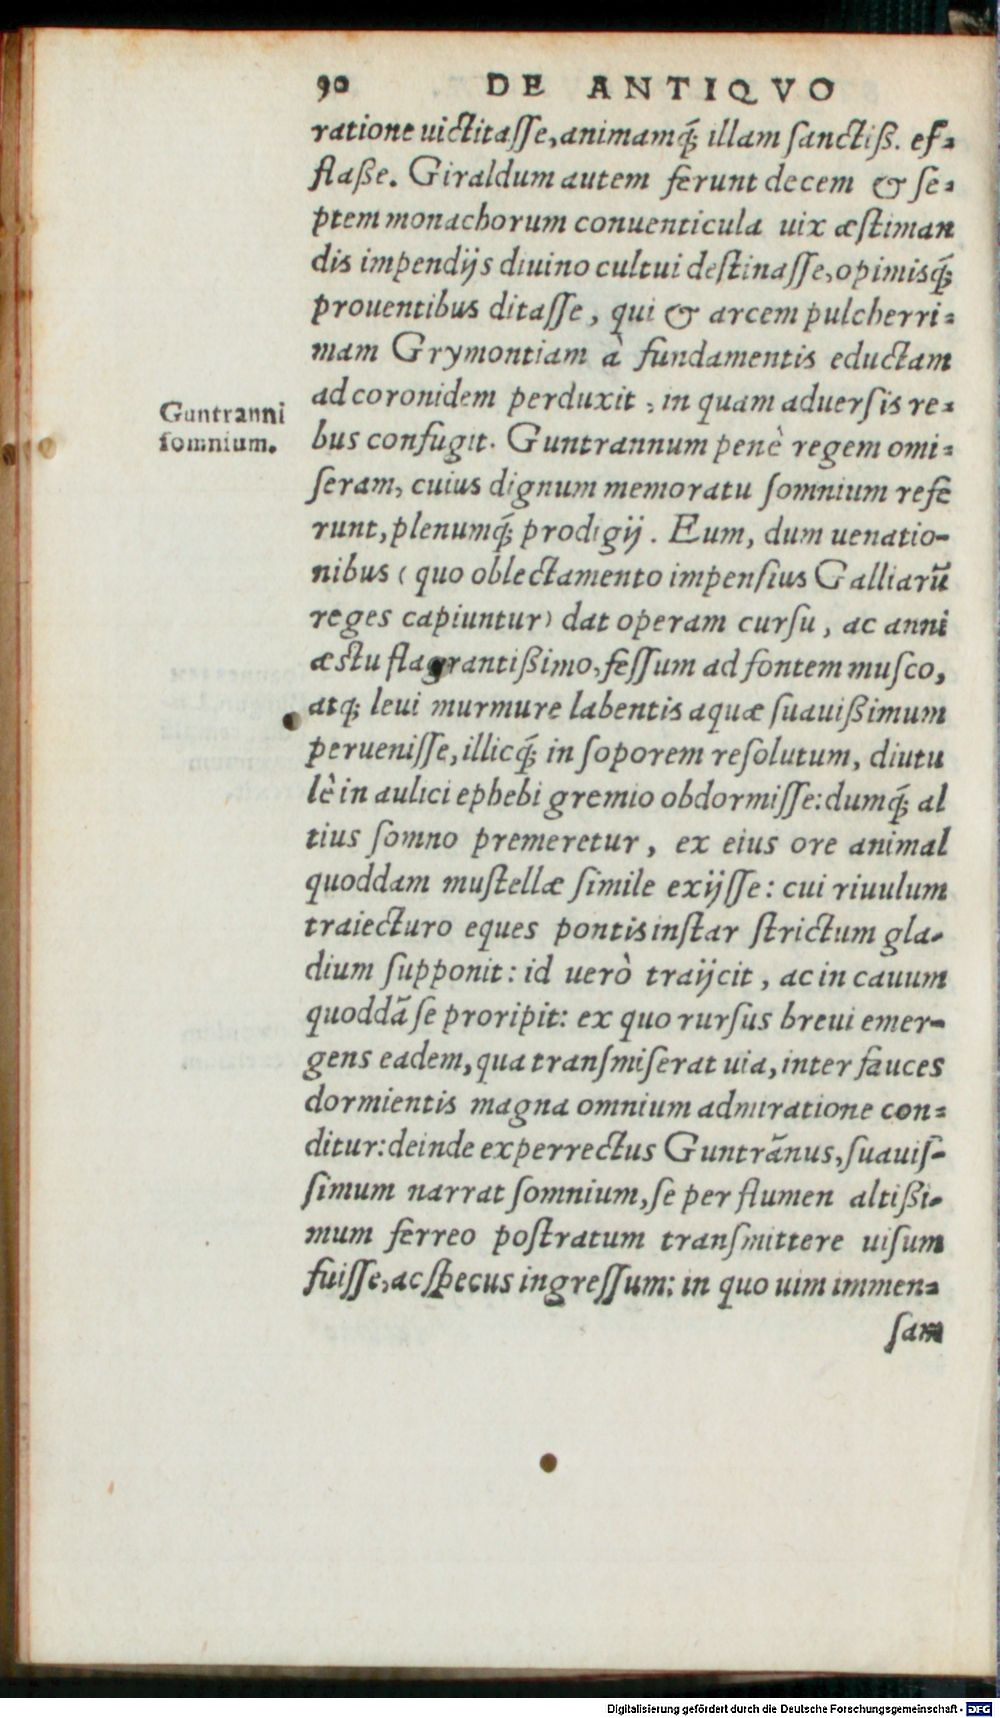 90 DE ANTIQVO
ratione uictitaſſe, animamq́; illam ſanctiß. ef-
flaße. Giraldum autem ferunt decem & ſe-
ptem monachorum conuenticula uix æſtiman
dis impendijs diuino cultui deſtinaſſe, opimisq́;
prouentibus ditaſſe, qui & arcem pulcherri-
mam Grymontiam à fundamentis eductam
ad coronidem perduxit, in quam aduerſis re-
bus confugit. Guntrannum penè regem omi-
Guntranni
ſomnium.
ſeram, cuius dignum memoratu ſomnium refe
runt, plenumq́; prodigij. Eum, dum uenatio-
nibus (quo oblectamento impenſius Galliarũ
reges capiuntur) dat operam curſu, ac anni
æſtu flagrantißimo, feſſum ad fontem muſco,
atq; leui murmure labentis aquæ ſuauißimum
perueniſſe, illicq́; in ſoporem reſolutum, diutu
lè in aulici ephebi gremio obdormiſſe: dumq́; al
tius ſomno premeretur, ex eius ore animal
quoddam muſtellæ ſimile exijſſe: cui riuulum
traiecturo eques pontis inſtar ſtrictum gla-
dium ſupponit: id uerò traijcit, ac in cauum
quoddã ſe proripit: ex quo rurſus breui emer-
gens eadem, qua tranſmiſerat uia, inter fauces
dormientis magna omnium admiratione con-
ditur: deinde experrectus Guntrãnus, ſuauiſ-
ſimum narrat ſomnium, ſe per flumen altißi-
mum ferreo poſtratum tranſmittere uiſum
fuiſſe, ac ſpecus ingreſſum: in quo uim immen-
ſam
Digitalisierung gefördert durch die Deutsche Forschungsgemeinschaft - DFG